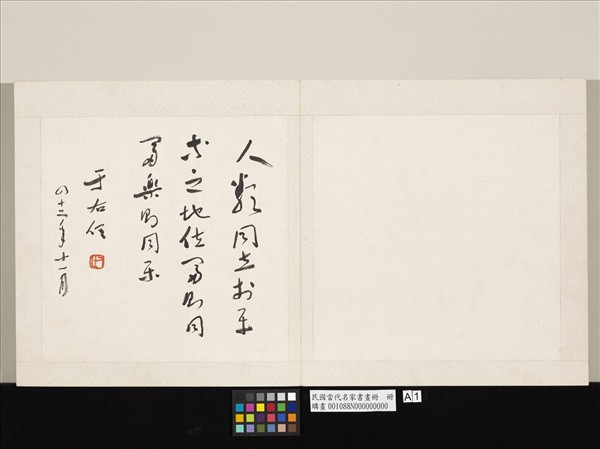 人類同立於平
等之地位富則同
富樂則同樂
于右任
四十三年十一月
民國當代名家書畫冊 冊
購畫 001088N000000000
A 1